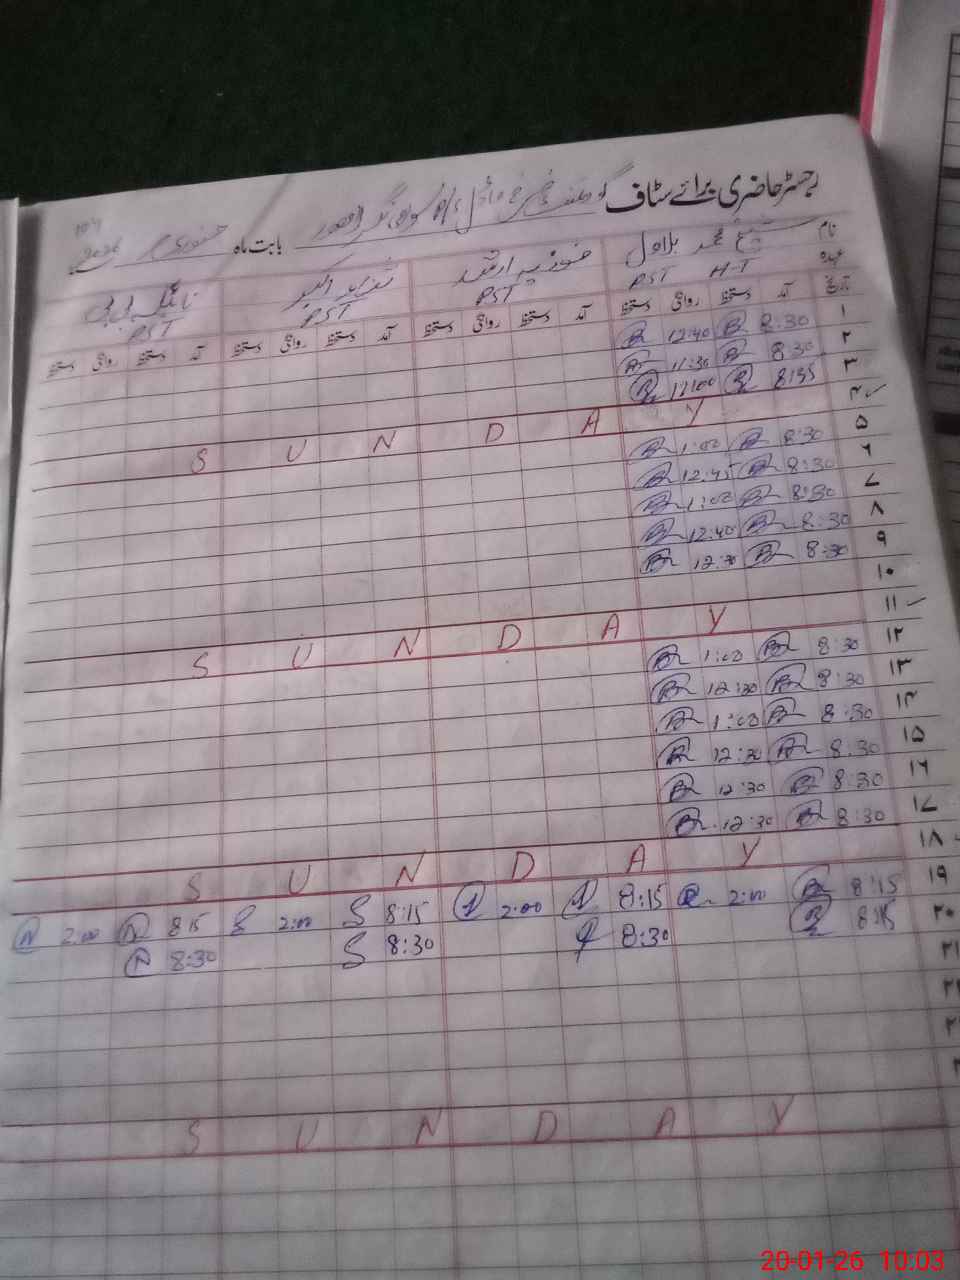 رجسٹر حاضری برائے سٹاف گورنمنٹ
بابت ماہ جنوری 2026
نام شیخ محمد بلاول فوزیہ ارشد اکبر نائلہ بی بی
عہدہ H-T PST PST PST PST
تاریخ آمد دستخط روانگی دستخط آمد دستخط روانگی دستخط آمد دستخط روانگی دستخط آمد دستخط روانگی دستخط
۱ 8:30 12:40
۲ 8:30 11:30
۳ 8:35 11:00
۴ ✓ S U N D A Y
۵ 8:30 1:00
۶ 8:30 12:45
۷ 8:30 1:00
۸ 8:30 12:40
۹ 8:30 12:30
۱۰
۱۱ ✓ S U N D A Y
۱۲ 8:30 1:00
۱۳ 8:30 12:30
۱۴ 8:30 1:00
۱۵ 8:30 12:30
۱۶ 8:30 12:30
۱۷ 8:30 12:30
۱۸ S U N D A Y
۱۹ 8:15 2:00 8:15 2:00 8:15 2:00 8:15 2:00
۲۰ 8:15 8:30 8:30 8:30
۲۱
S U N D A Y
20-01-26 10:03